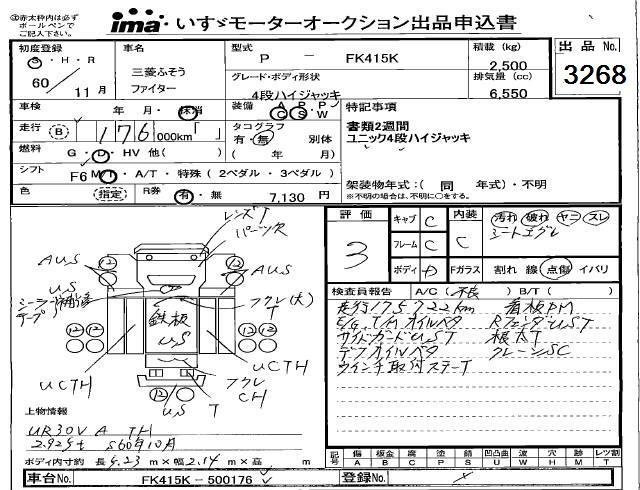 ◎赤太枠内は必ず
ボールペンで
ご記入下さい。
ima いすゞモーターオークション出品申込書
初度登録
S・H・R
60 / 11 月
車名
三菱ふそう
ファイター
型式
P － FK415K
グレード・ボディ形状
4段ハイジャッキ
積載 (kg)
2,500
排気量 (cc)
6,550
出品 No.
3268
車検
年 月・抹消
装備 A P P
G S・W
特記事項
書類2週間
ユニック4段ハイジャッキ
走行 B 176 000km「 」
タコグラフ
有・無 別体
( 年 月)
燃料
G・D・HV 他( )
シフト F6 M/T・A/T・特殊 (2ペダル・3ペダル)
色 (指定) R券 有・無 7,130 円
架装物年式:( 同 年式)・不明
※不明の場合は、不明に○をする。
評価
3
キャブ C
フレーム C
ボディ D
内装
C
Fガラス
汚れ 破れ ヤニ スレ
シートエグレ
割れ 線 点傷 イバリ
検査員報告 A/C( 不良 ) B/T( )
走行175722km 看板PM
E/G、T/Mオイルベタ RフェンダUST
サイドガードUST 根太T
デフオイルベタ クレーンSC
ウインチ取付ステーT
レンズT
パーツ欠
AUS
AUS
US
テープ
フクレ(大)
T
鉄板
US
UCTH
UCTH
フクレ
CH
US T
上物情報
UR30V A TH
2.925t S60年10月
ボディ内寸約 長 5.23 m×幅 2.14 m×高 m
記号 傷A 板金B 腐C 塗P 錆S 凹凸曲U 波W 穴H 跡M レツ割T
車台No. FK415K－500176
登録No.